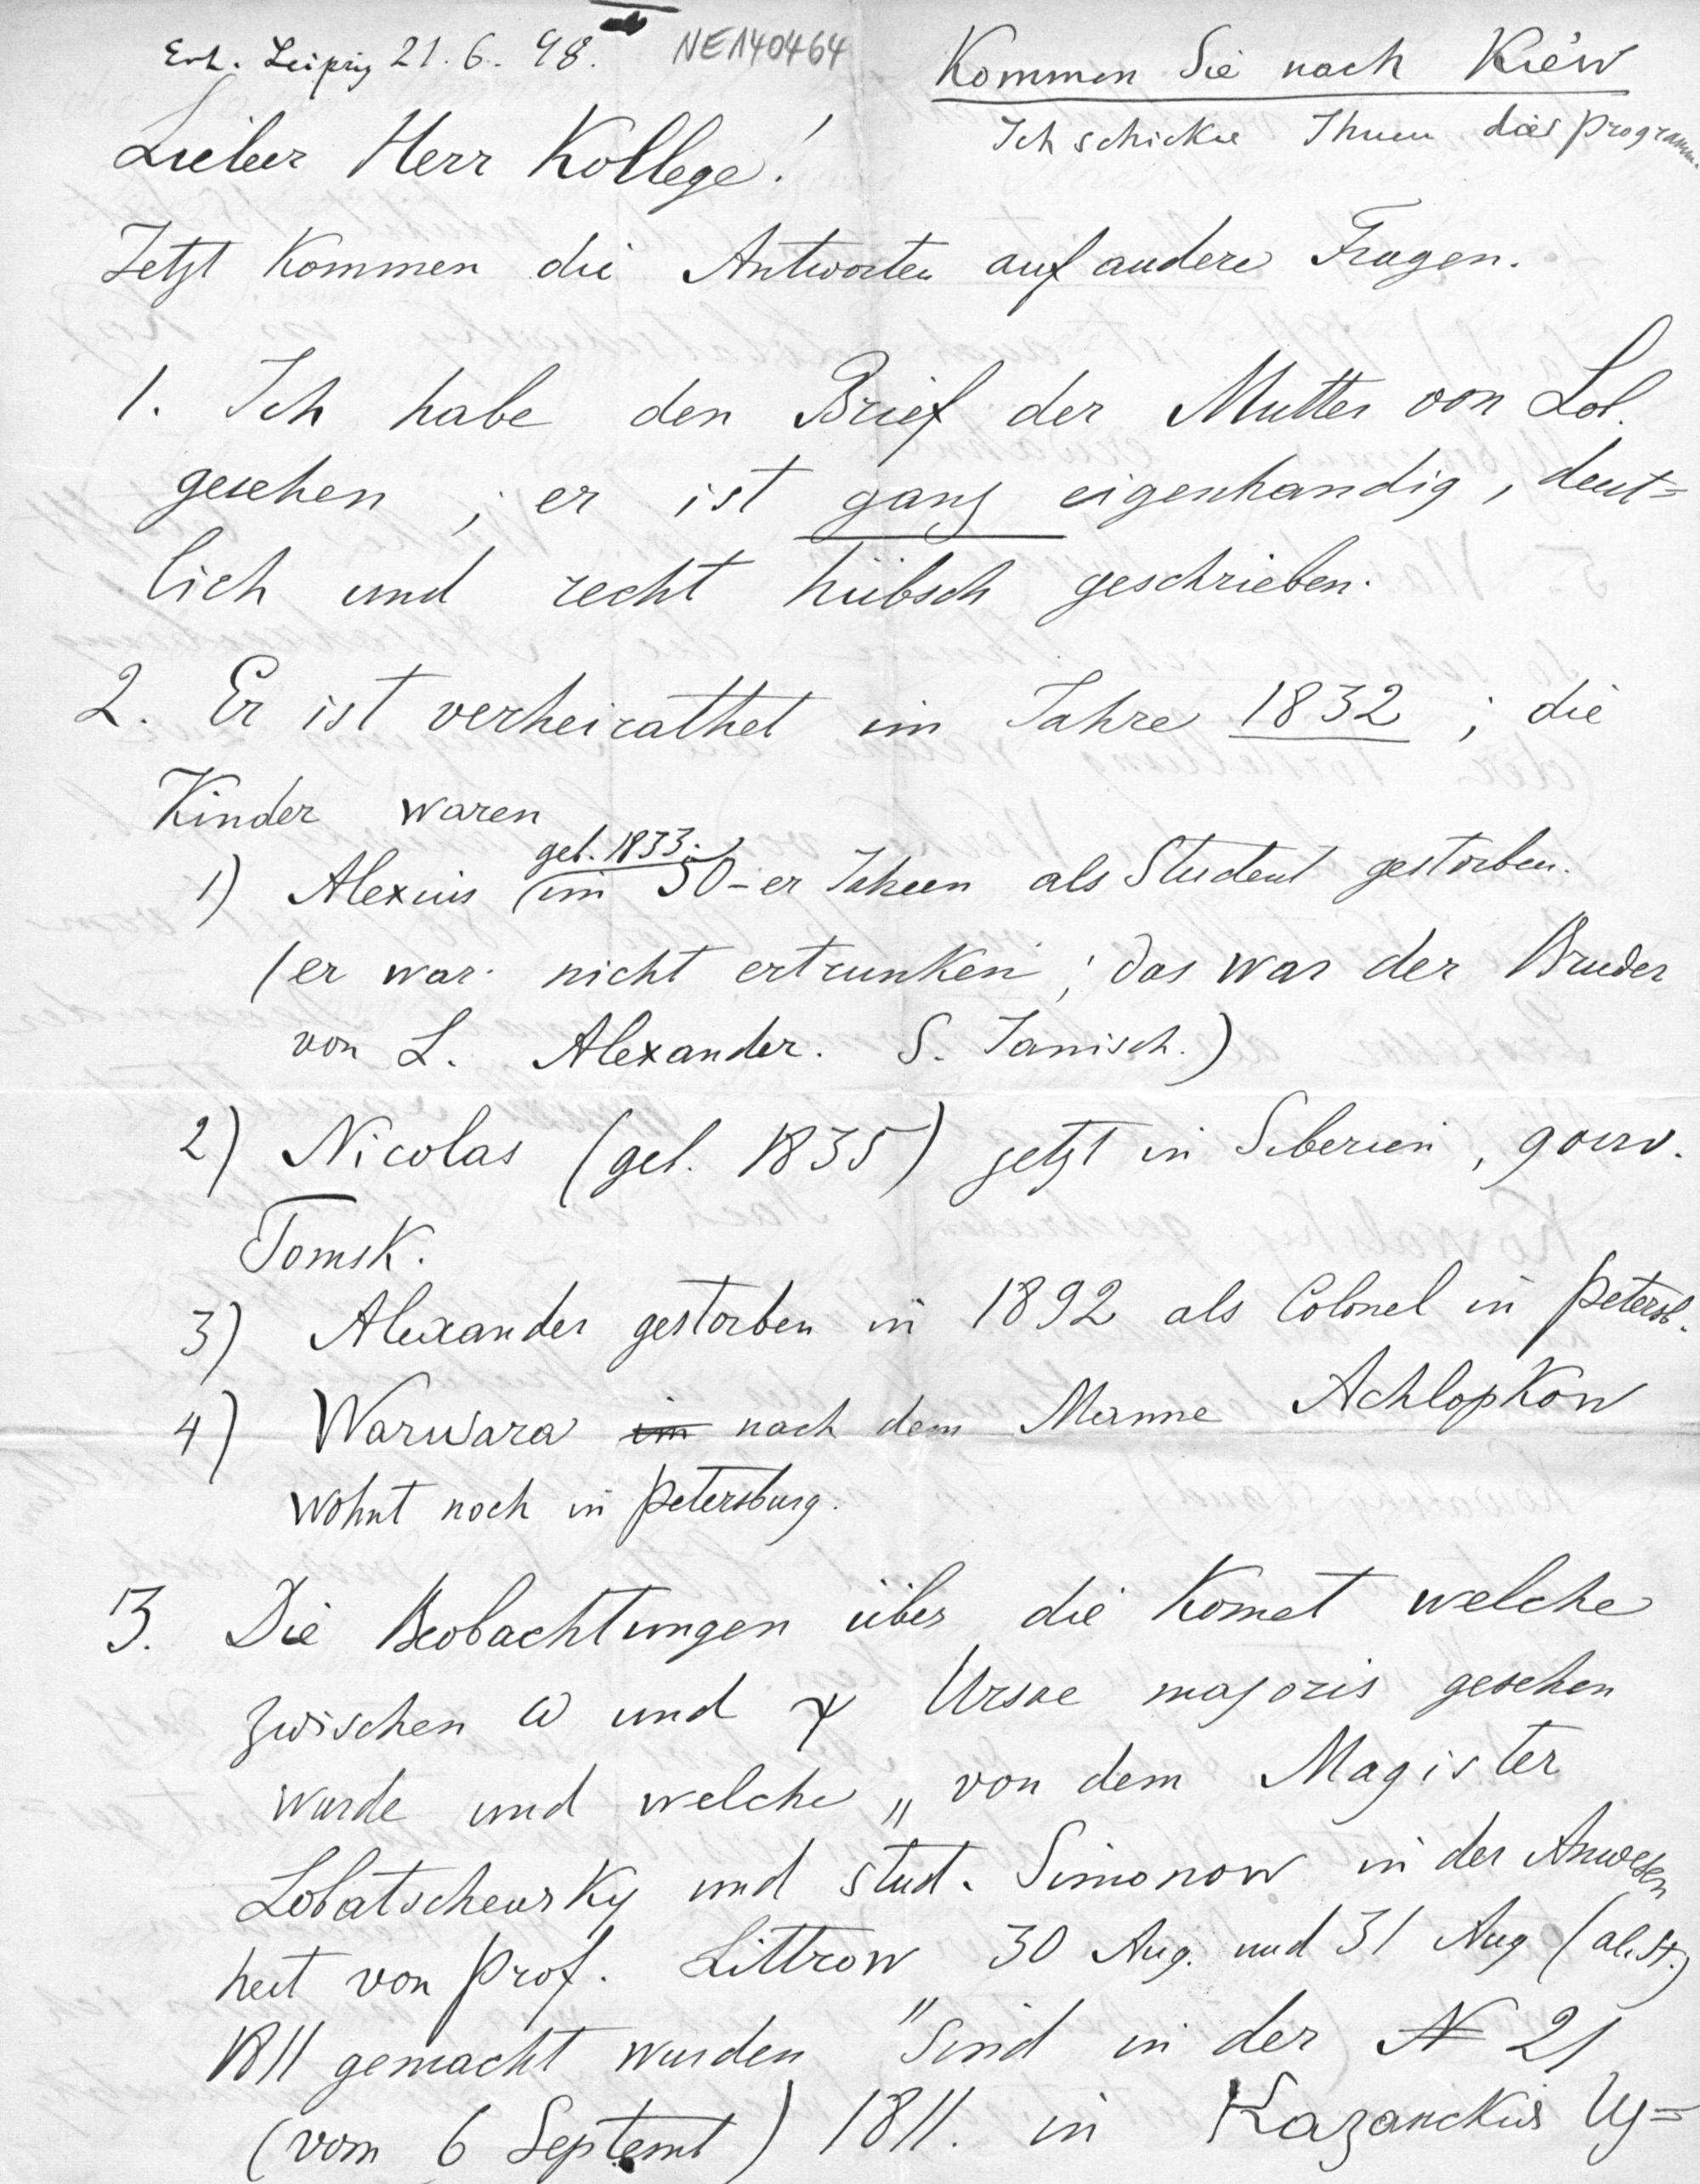 Erh. Leipzig 21. 6. 98.
NE140464
Kommen Sie nach Kiew
Ich schicke Ihnen das Programm.
Lieber Herr Kollege!
Jetzt kommen die Antworten auf andere Fragen.
1. Ich habe den Brief der Mutter von Lob.
gesehen; er ist ganz eigenhandig, deut=
lich und recht hübsch geschrieben.
2. Er ist verheirathet im Jahre 1832; die
Kinder waren
geb. 1833.
1) Alexius (im 50-er Jahren als Student gestorben.
(er war nicht ertrunken; das war der Bruder
von L. Alexander. S. Janisch.)
2) Nicolas (geb. 1835) jetzt in Siberien, gouv.
Tomsk.
3) Alexander gestorben in 1892 als Colonel in Petersb.
4) Warwara im nach dem Manne Achlopkow
wohnt noch in Petersburg.
3. Die Beobachtungen über die Komet welche
zwischen ω und ψ Ursae majoris gesehen
wurde und welche „von dem Magister
Lobatschewsky und stud. Simonow in der Anwesen
heit von Prof. Littrow 30 Aug. und 31 Aug (al. St.)
1811 gemacht wurden" sind in der N 21
(vom 6 Septemb) 1811. in Kazanckija Iz=